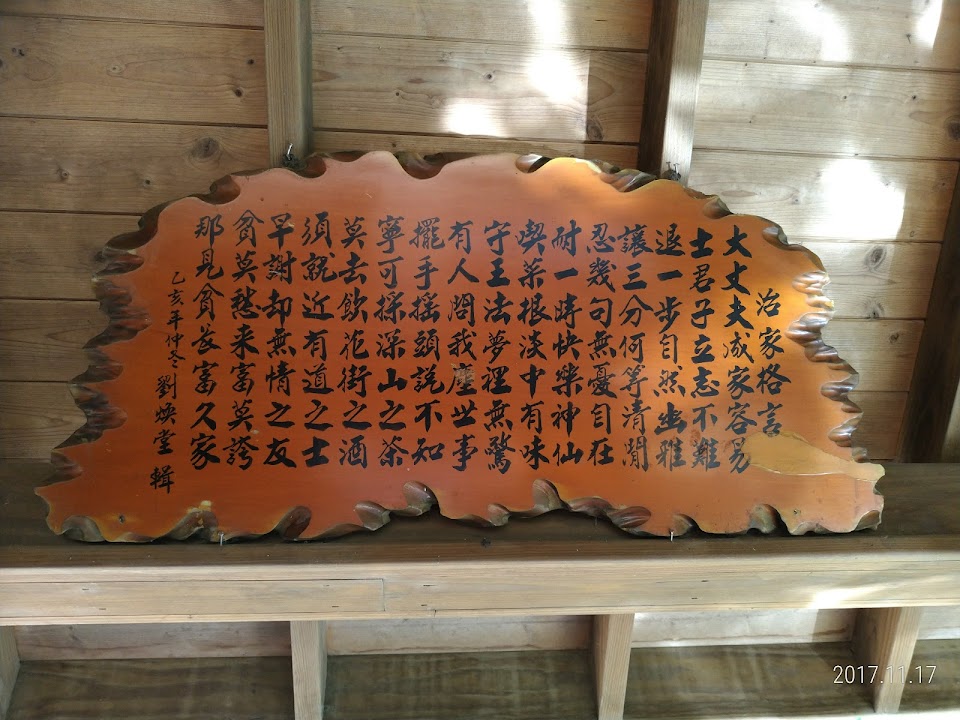 治家格言
大丈夫成家容易
士君子立志不難
退一步自然幽雅
讓三分何等清閒
忍幾句無憂自在
耐一時快樂神仙
喫菜根淡中有味
守王法夢裡無驚
有人問我塵世事
擺手搖頭說不知
寧可採深山之茶
莫去飲花街之酒
須就近有道之士
早謝却無情之友
貧莫愁来富莫誇
那見貧長富久家
乙亥年仲冬 劉煥堂 輯
2017.11.17